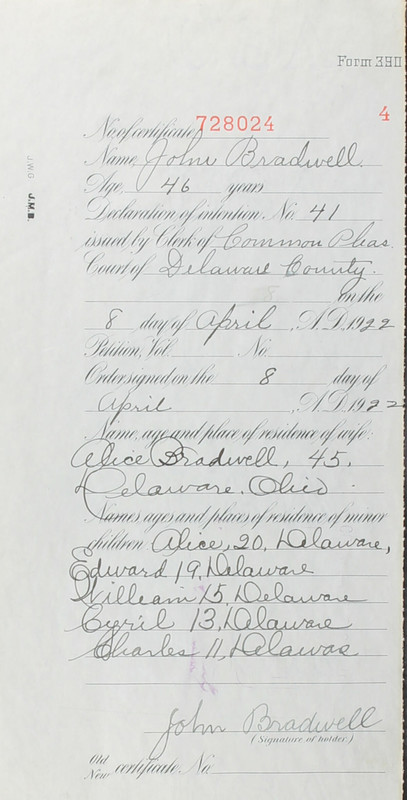 Form 390
4
No. of certificate, 728024
Name, John Bradwell.
Age, 46 years
Declaration of intention, No. 41
issued by Clerk of Common Pleas
Court of Delaware County.
8 on the
8 day of April, A.D. 1922
Petition, Vol. No.
Order signed on the 8 day of
April, A.D. 1922
Name, age and place of residence of wife:
Alice Bradwell, 45,
Delaware. Ohio.
Names, ages and places of residence of minor
children Alice, 20, Delaware,
Edward 19, Delaware
William 15, Delaware
Cyril 13, Delaware
Charles 11, Delawae
John Bradwell
(Signature of holder.)
Old
New certificate No.
J.W.G. J.M.B.